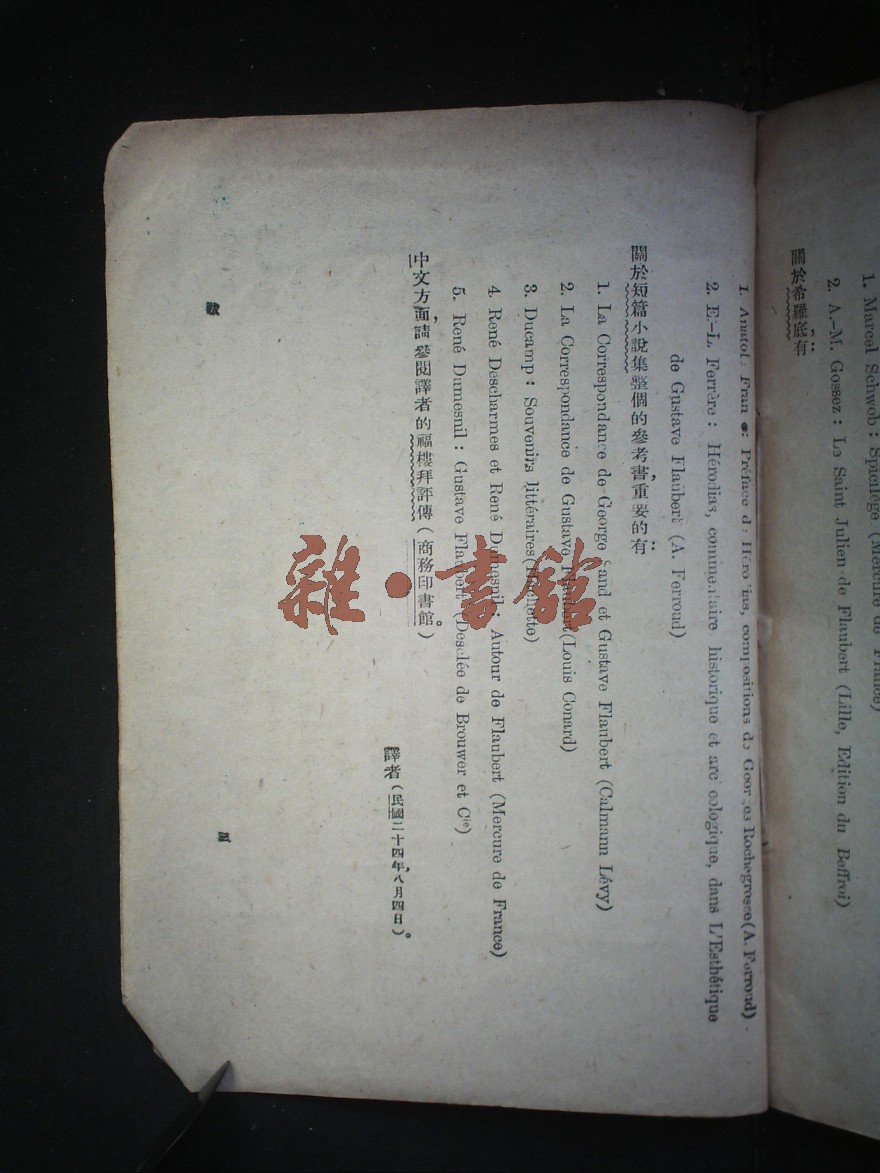 1. Marcel Schwob : Spicilège (Mercure de France)
2. A.-M. Gossez : Le Saint Julien de Flaubert (Lille, Edition du Beffroi)
關於希羅底有：
1. Anatole Fran : Préface d Héro ias, compositions de Geor es Rochegrosse (A. Ferroud)
2. E.-L. Ferrère : Hérodias, commentaire historique et arc éologique, dans L'Esthétique
de Gustave Flaubert (A. Ferroud)
關於短篇小說集整個的參考書，重要的有：
1. La Correspondance de George Sand et Gustave Flaubert (Calmann Lévy)
2. La Correspondance de Gustave Flaubert (Louis Conard)
3. Ducamp : Souvenirs littéraires (Hachette)
4. René Descharmes et René Dumesnil : Autour de Flaubert (Mercure de France)
5. René Dumesnil : Gustave Flaubert (Desclée de Brouwer et Cie)
中文方面，請參閱譯者的福樓拜評傳（商務印書館。）
譯者（民國二十四年，八月四日）。
跋
五
雜·書館